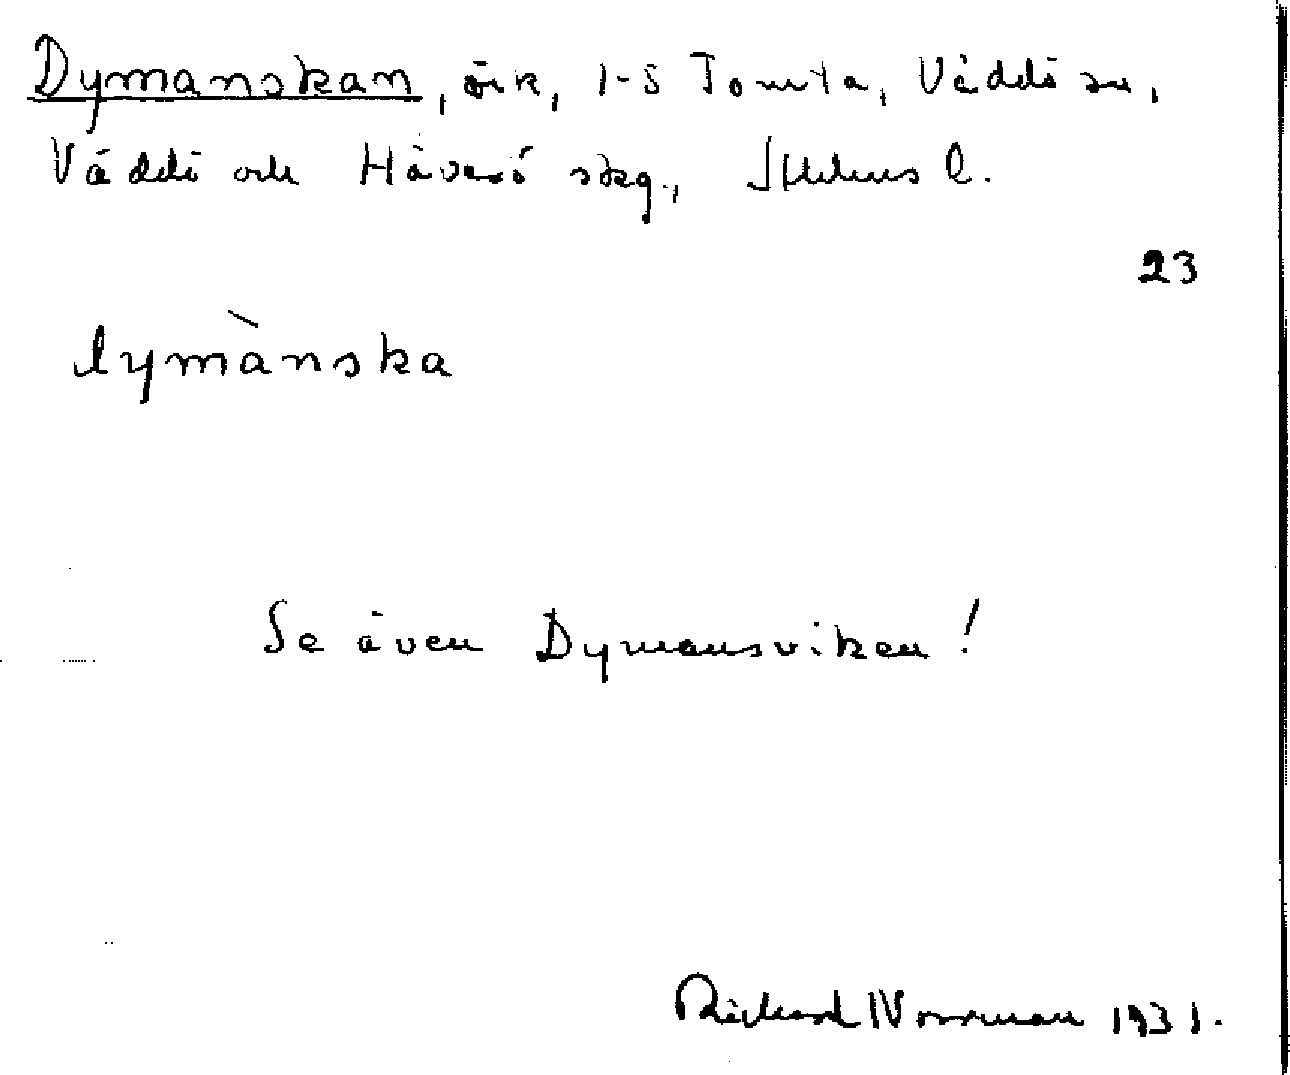 Dymanskan, åk, 1-5 Tomta, Väddö sn,
Väddö och Häverö skg., Sthlms l.
23
lymànska
Se även Dymansviken!
Rickard Norrman 1931.